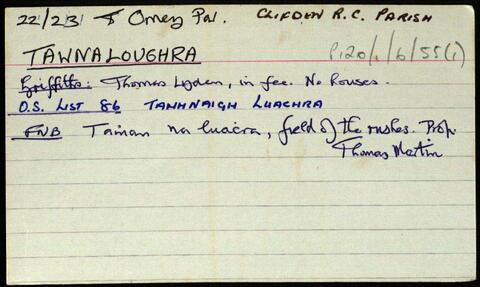 22/23 T Omey Par. CLIFDEN R.C. PARISH
TAWNALOUGHRA P120/1/6/55(1)
Griffiths: Thomas Lyden, in fee. No houses.
O.S. LIST 86 TAMHNAIGH LUACHRA
FNB Taman na luacra, field of the rushes. Prop.
Thomas Martin